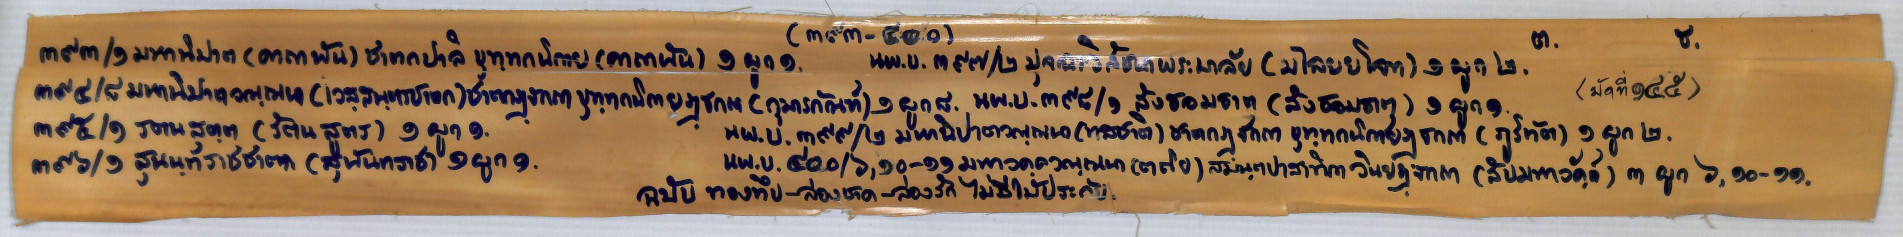 (๓๙๓-๔๐๐) ต. ช.
๓๙๓/๑ มหานิปาต (คาถาพัน) ชาตกปาลิ ขุทฺทกนิกาย (คาถาพัน) ๑ ผูก ๑. นพ.บ. ๓๙๗/๒ ปุจฺฉาวิสัชนาพระมาลัย (มาไลยยโจท) ๑ ผูก ๒.
๓๙๔/๘ มหานิปาตวณฺณนา (เวสฺสนฺตรชาดก) ชาตกฏฺฐกถา ขุทฺทกนิกายฏฺฐกถา (กุมารกัณฑ์) ๑ ผูก ๘. นพ.บ. ๓๙๘/๑ สังฮอมธาต (สังฮอมธาตุ) ๑ ผูก ๑. (มัดที่ ๑๔๕)
๓๙๕/๑ รตนสุตฺต (รัตนสูตร) ๑ ผูก ๑. นพ.บ. ๓๙๙/๒ มหานิปาตวณฺณนา (ทสชาติ) ชาตกฏฺฐกถา ขุทฺทกนิกายฏฺฐกถา (ภูริทัต) ๑ ผูก ๒.
๓๙๖/๑ สุนนฺทราชชาตก (สุนันทราช) ๑ ผูก ๑. นพ.บ. ๔๐๐/๖, ๑๐-๑๑ มหาวคฺควณฺณนา (ตติย) สมนฺตปาสาทิกา วินยฏฺฐกถา (สัปมหาวัคค์) ๓ ผูก ๖, ๑๐-๑๑.
ฉบับ ทองทึบ-ล่องชาด-ล่องรัก ไม่มีไม้ประกับ.